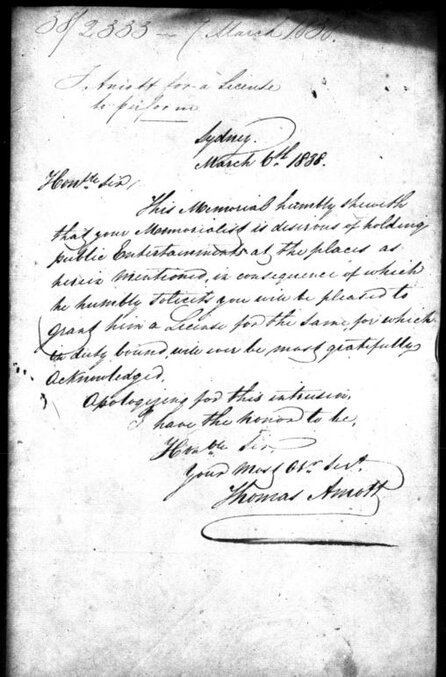 38/2333 — 7 March 1838.
T. Amott for a License
to perform
Sydney.
March 6th. 1838.
Honble Sir,
This Memorial humbly sheweth
that your Memorialist is desirous of holding
public Entertainments at the places as
herein mentioned, in consequence of which
he humbly solicits you will be pleased to
grant him a License for the same, for which
in duty bound, will ever be most gratefully
Acknowledged.
Apologizing for this intrusion,
I have the honor to be,
Honble Sir,
Your Most Obt. Servt.
Thomas Amott